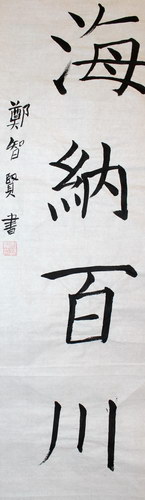 海納百川
鄭智賢書